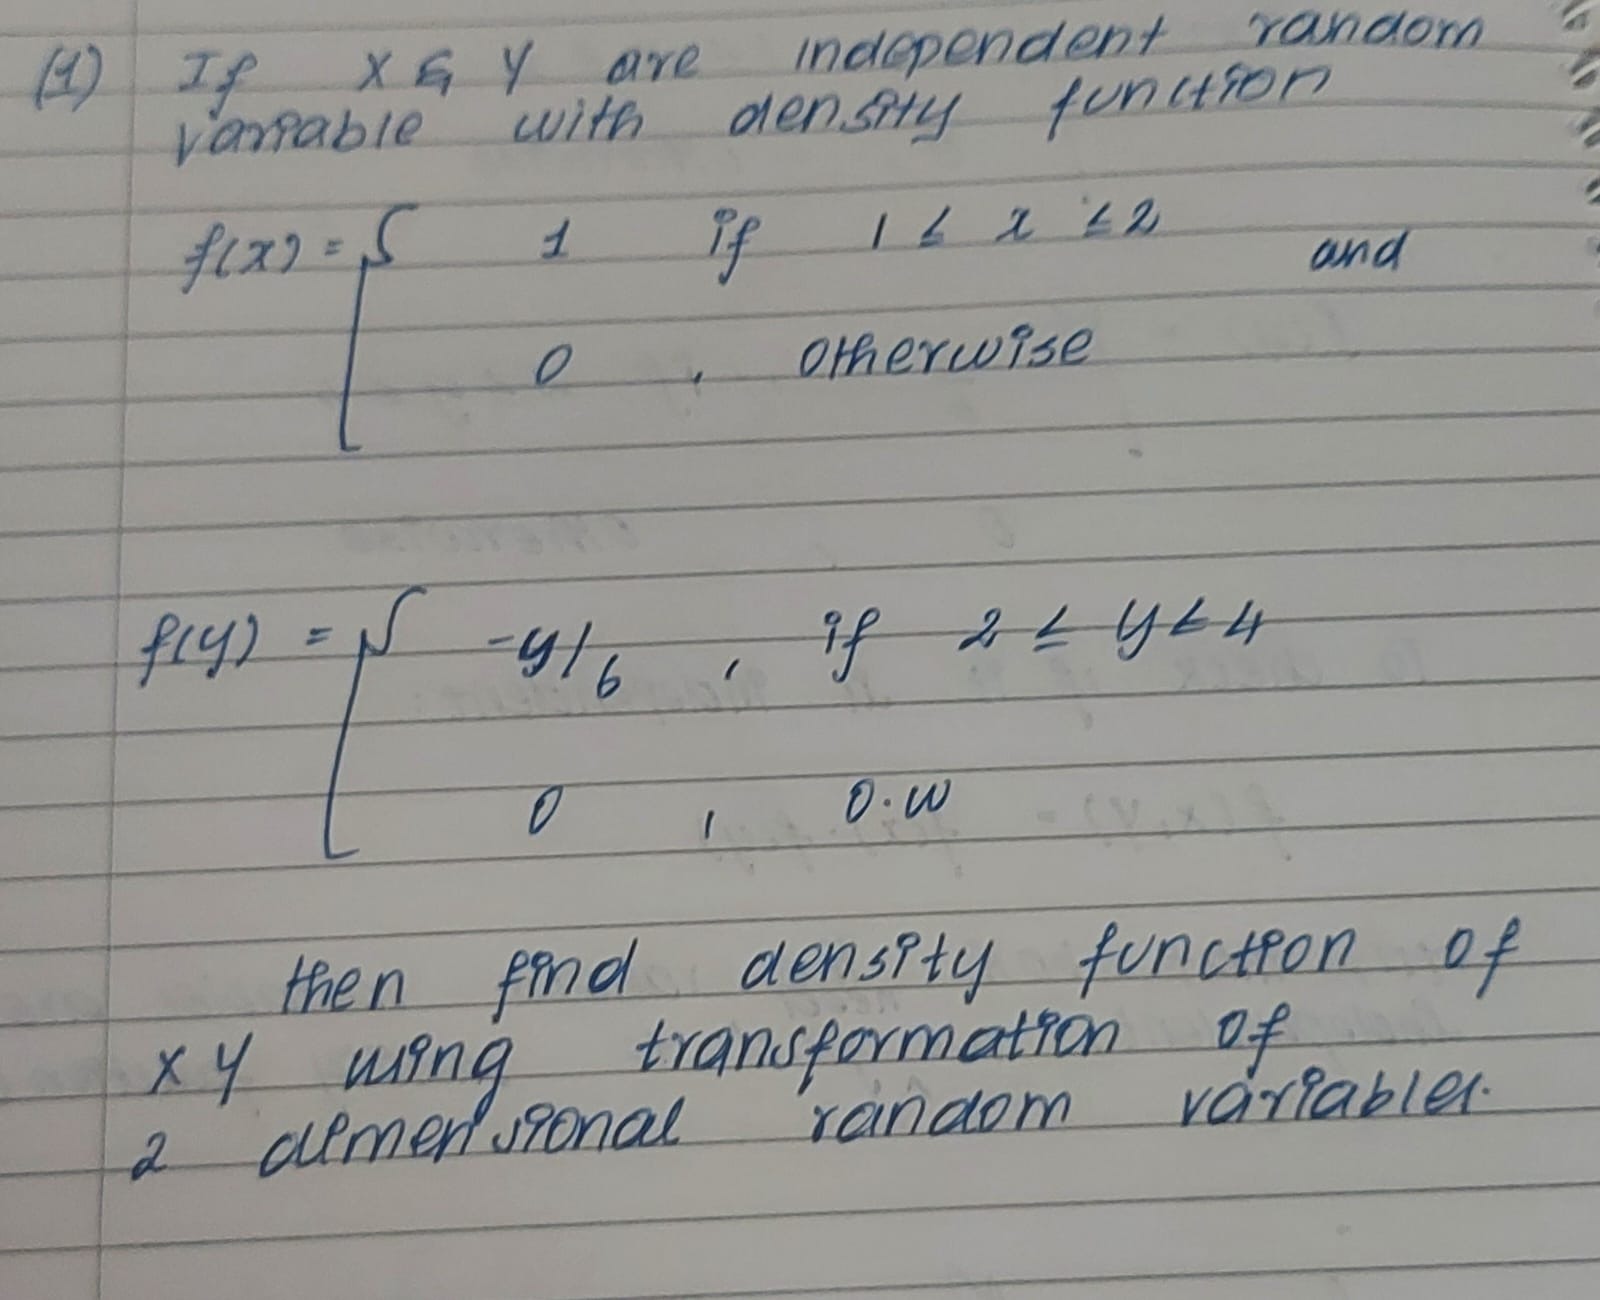 (1) If X & Y are independent random
variable with density function
f(x) = { 1 if 1 ≤ x ≤ 2 and
0 , otherwise
f(y) = { -y/6 , if 2 ≤ y < 4
0 , 0.w
then find density function of
x y using transformation of
2 dimensional random variables.